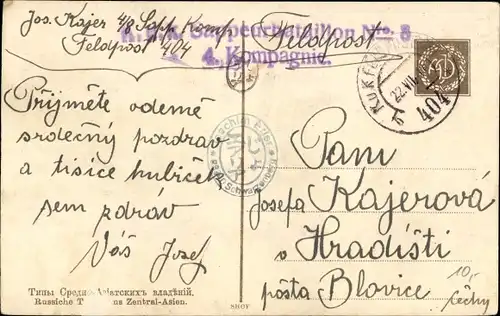 Jos. Kajer 4/8 Sapp. Komp.
Feldpost 404
K.u.k. Sappeurbataillon Nro. 8
4. Kompagnie.
Feldpost
22.VII.
404
Přijměte odemě
srdečný pozdrav
a tisíce hubiček
sem zdráv
Váš Josef
Paní
Josefa Kajerová
v Hradišti
pošta Blovice
10,-
Čechy
Типы Средне-Азіатскихъ владѣній.
Russiche T ns Zentral-Asien.